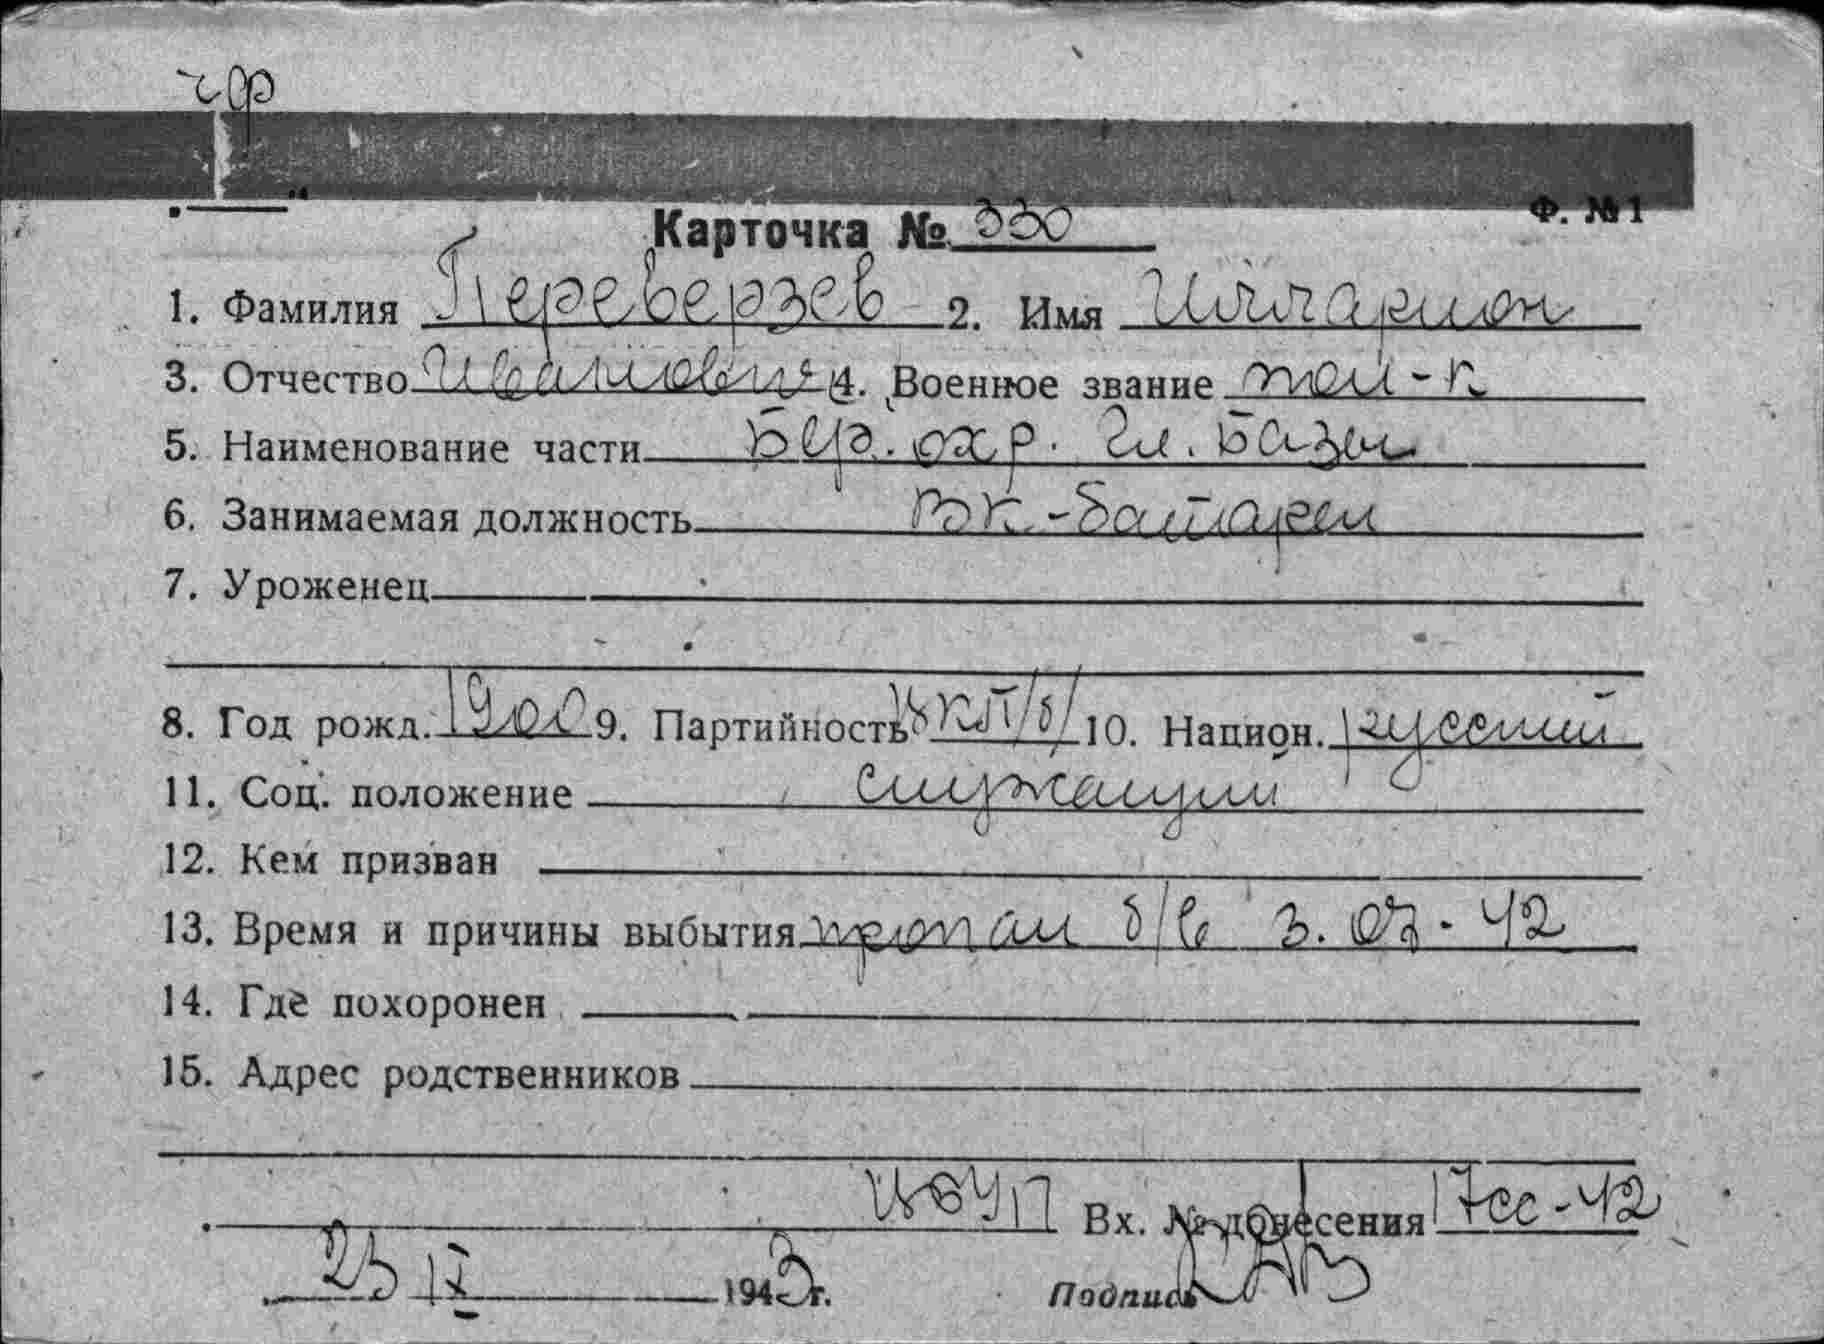 чф
Ф. №1
Карточка № 330
1. Фамилия Переверзев 2. Имя Илларион
3. Отчество Иванович 4. Военное звание тей-к
5. Наименование части Бер. охр. Гл. Базы
6. Занимаемая должность ВК-батареи
7. Уроженец
8. Год рожд. 1900 9. Партийность ВКП/б/ 10. Национ. русский
11. Соц. положение служащий
12. Кем призван
13. Время и причины выбытия пропал б/в 3.07-42
14. Где похоронен
15. Адрес родственников
Вх. № донесения 17сс-42
23 IX 1943 г. Подпись